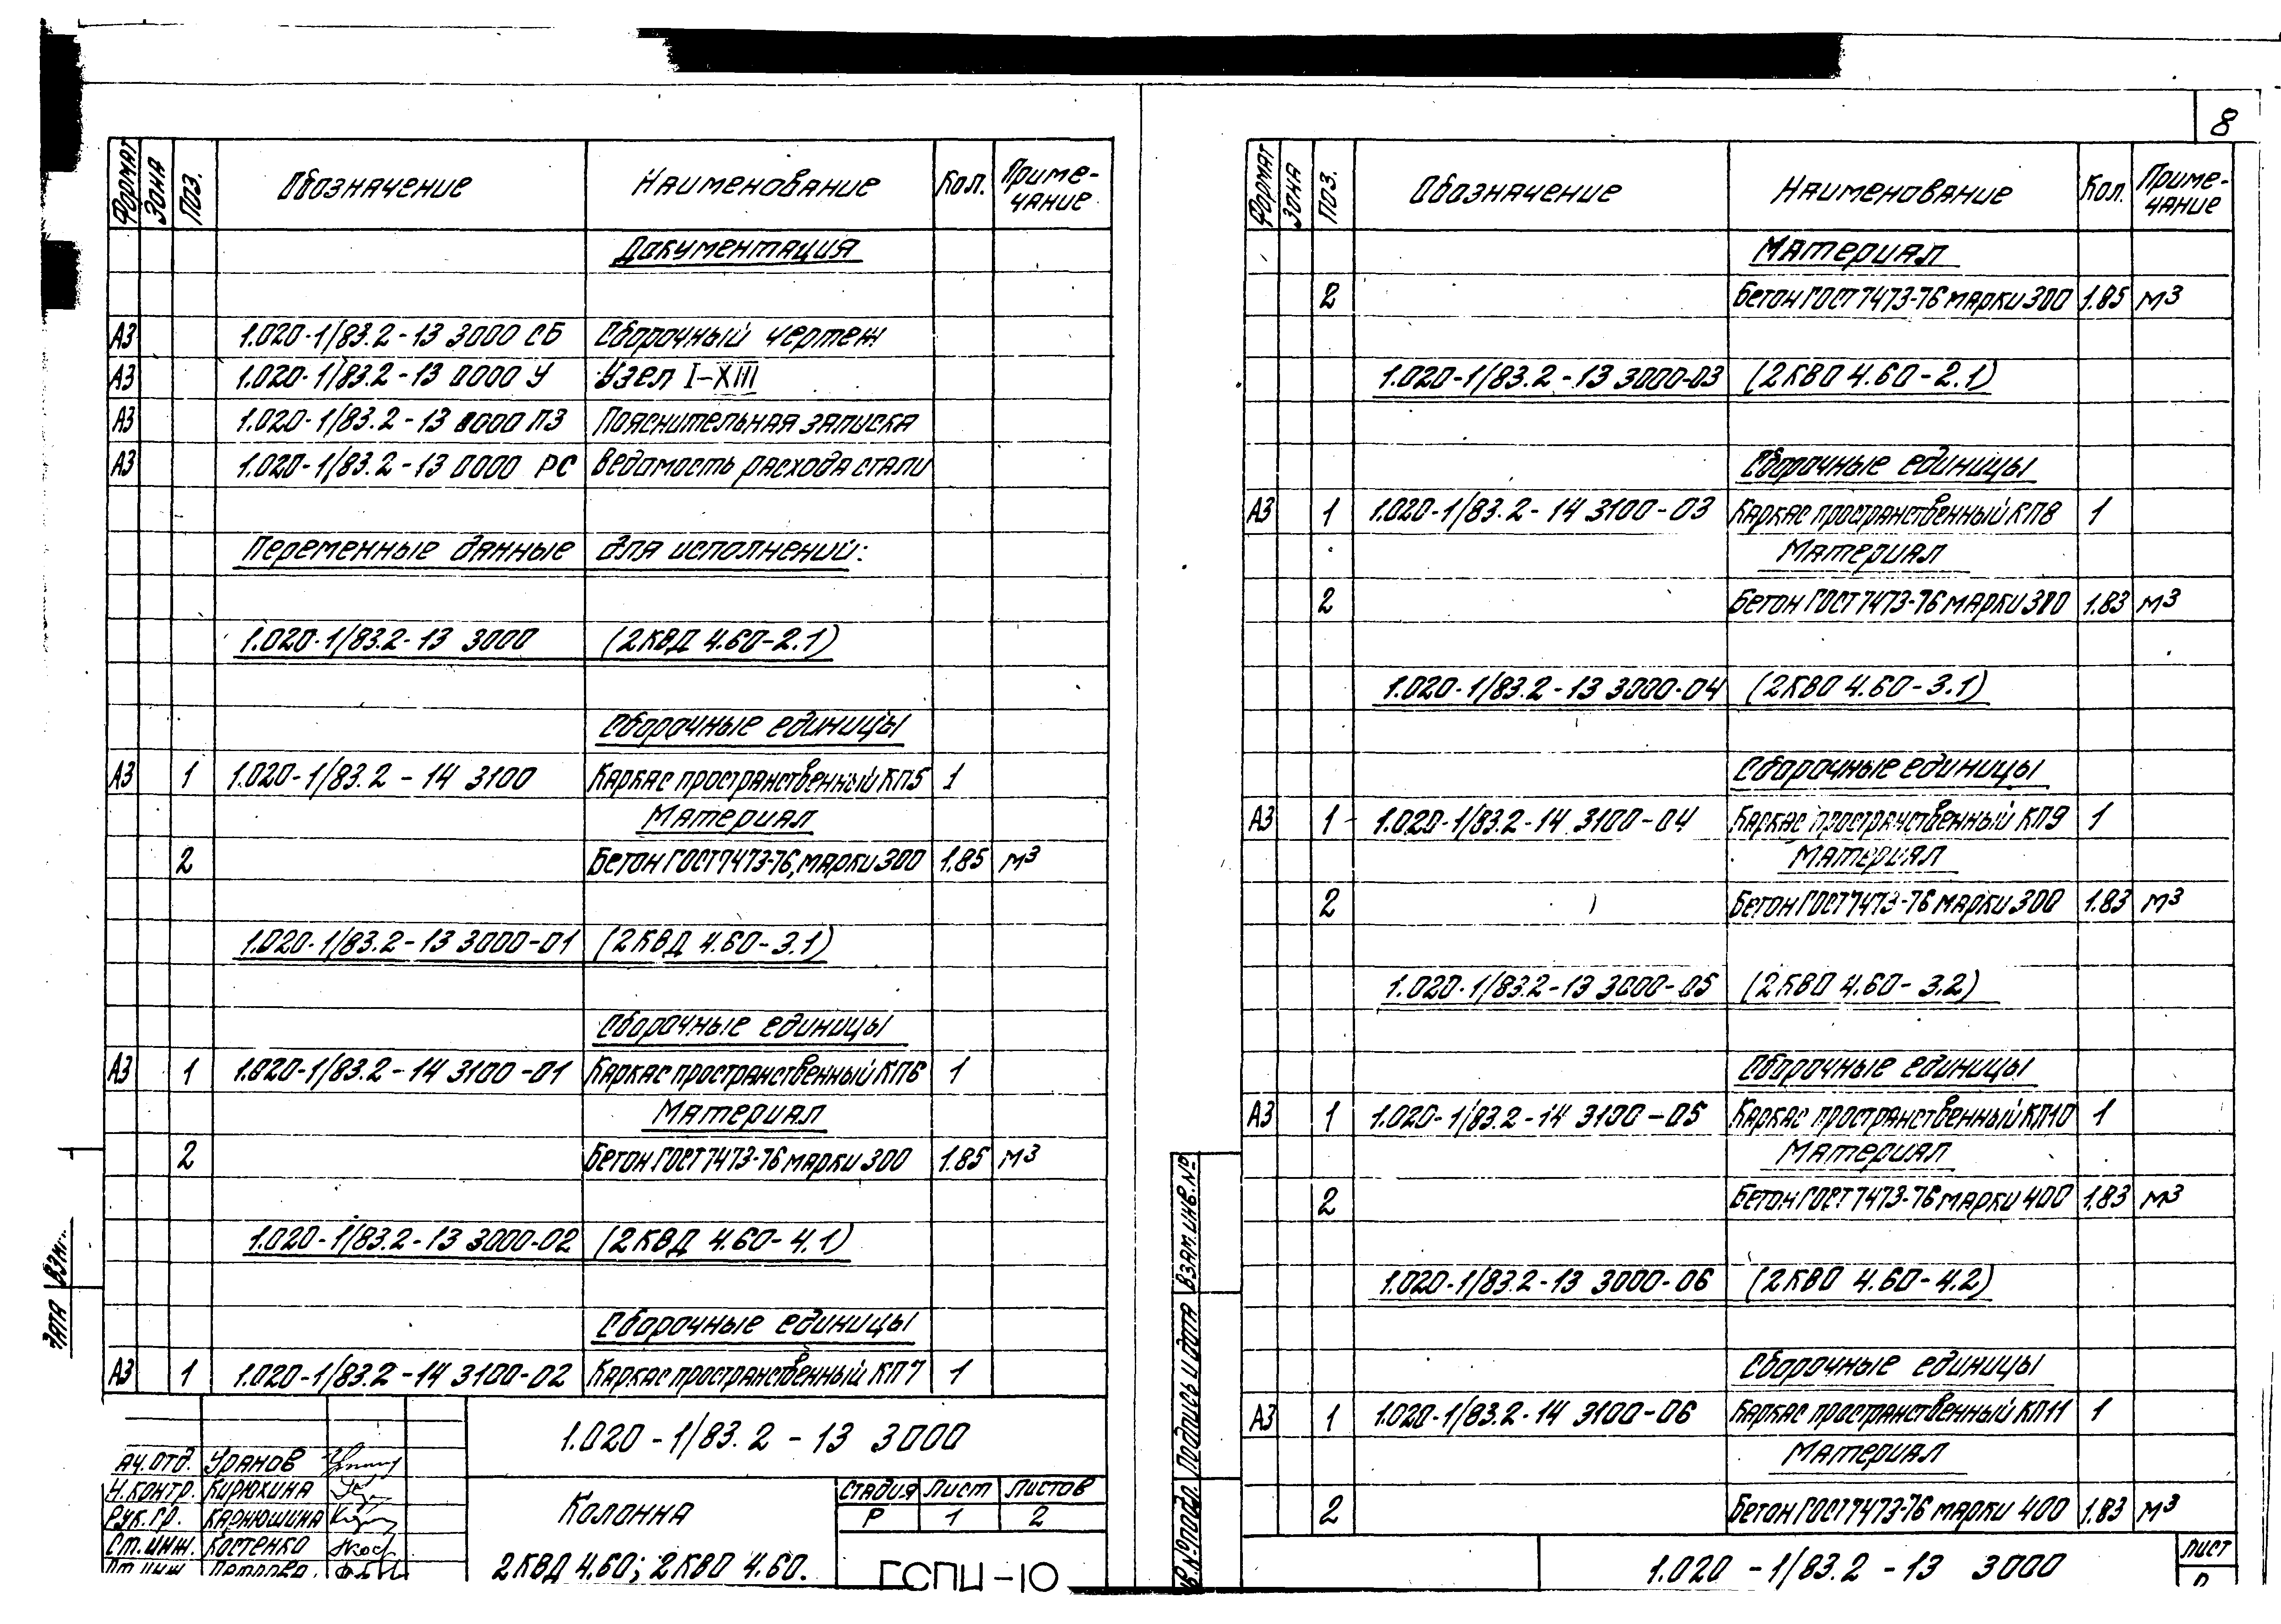 8
Формат Зона Поз. Обозначение Наименование Кол. Приме-чание
Документация
А3 1.020-1/83.2-13 3000 СБ Сборочный чертеж
А3 1.020-1/83.2-13 0000 У Узел I-XIII
А3 1.020-1/83.2-13 0000 ПЗ Пояснительная записка
А3 1.020-1/83.2-13 0000 РС Ведомость расхода стали
Переменные данные для исполнений:
1.020-1/83.2-13 3000 (2КВД 4.60-2.1)
Сборочные единицы
А3 1 1.020-1/83.2-14 3100 Каркас пространственный КП5 1
Материал
2 Бетон ГОСТ 7473-76, марки 300 1.85 м3
1.020-1/83.2-13 3000-01 (2КВД 4.60-3.1)
Сборочные единицы
А3 1 1.020-1/83.2-14 3100-01 Каркас пространственный КП6 1
Материал
2 Бетон ГОСТ 7473-76 марки 300 1.85 м3
1.020-1/83.2-13 3000-02 (2КВД 4.60-4.1)
Сборочные единицы
А3 1 1.020-1/83.2-14 3100-02 Каркас пространственный КП7 1
1.020-1/83.2-13 3000
ач.отд. Уранов
Н.контр. Кирюхина
Рук.гр. Карнюшина
Ст.инж. Костенко
Колонна
2КВД 4.60; 2КВО 4.60.
Стадия Лист Листов
Р 1 2
ГСПИ-10
Формат Зона Поз. Обозначение Наименование Кол. Приме-чание
Материал
2 Бетон ГОСТ 7473-76 марки 300 1.85 м3
1.020-1/83.2-13 3000-03 (2КВО 4.60-2.1)
Сборочные единицы
А3 1 1.020-1/83.2-14 3100-03 Каркас пространственный КП8 1
Материал
2 Бетон ГОСТ 7473-76 марки 300 1.83 м3
1.020-1/83.2-13 3000-04 (2КВО 4.60-3.1)
Сборочные единицы
А3 1 1.020-1/83.2-14 3100-04 Каркас пространственный КП9 1
Материал
2 Бетон ГОСТ 7473-76 марки 300 1.83 м3
1.020-1/83.2-13 3000-05 (2КВО 4.60-3.2)
Сборочные единицы
А3 1 1.020-1/83.2-14 3100-05 Каркас пространственный КП10 1
Материал
2 Бетон ГОСТ 7473-76 марки 400 1.83 м3
1.020-1/83.2-13 3000-06 (2КВО 4.60-4.2)
Сборочные единицы
А3 1 1.020-1/83.2-14 3100-06 Каркас пространственный КП11 1
Материал
2 Бетон ГОСТ 7473-76 марки 400 1.83 м3
Подпись и дата Взам.инв.№
1.020-1/83.2-13 3000
Лист